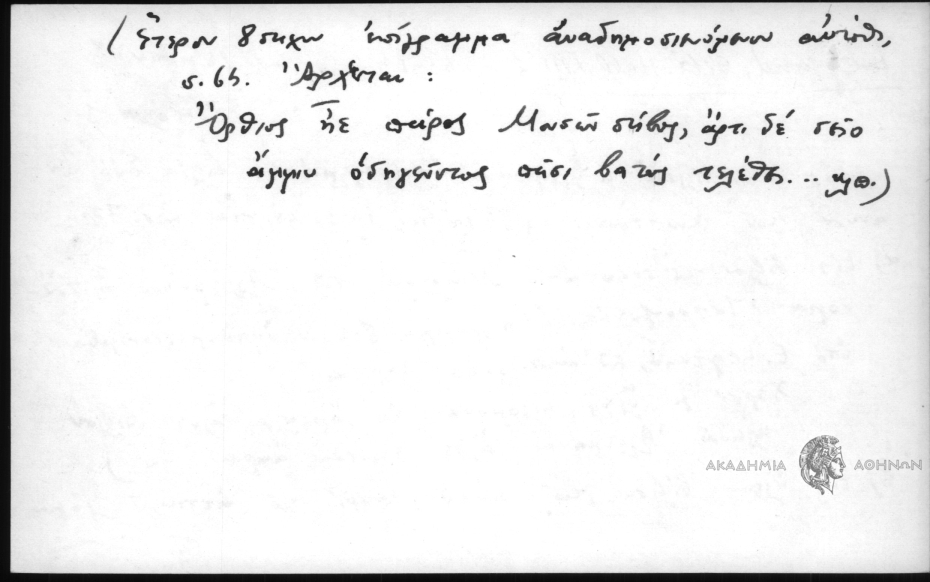 (Ἕτερον 8στιχον ἐπίγραμμα ἀναδημοσιευόμενον αὐτόθι,
σ. 65. Ἄρχεται:
Ὄρθιος ἦε πάρος Μουσῶν στίβος, ἄρτι δὲ σεῖο
ἄμμιν ὁδηγεῦντος πᾶσι βατὸς τελέθει... κλπ.)
ΑΚΑΔΗΜΙΑ ΑΘΗΝΩΝ